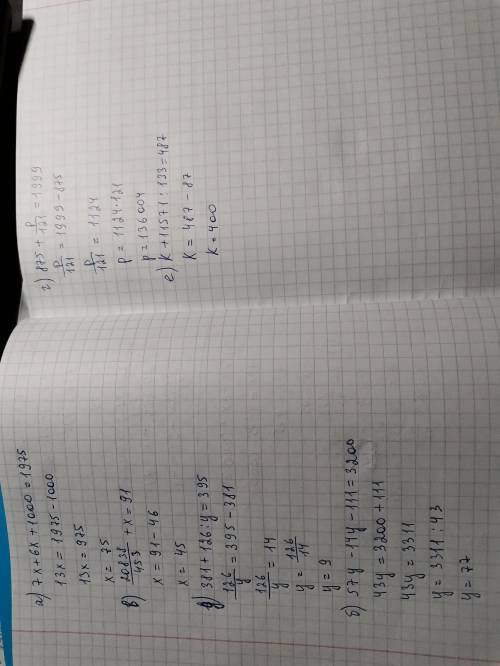 а) 7x+6x+1000=1975
13x=1975-1000
13x=975
x=75
в) 20838/453 + x = 91
x=91-46
x=45
д) 381+126:y=395
126/y = 395-381
126/y = 14
y = 126/14
y=9
б) 57y-14y-111=3200
43y=3200+111
43y=3311
y=3311:43
y=77
г) 875 + p/121 = 1999
p/121 = 1999-875
p/121 = 1124
p=1124·121
p=136004
е) k+11571:133=487
k=487-87
k=400